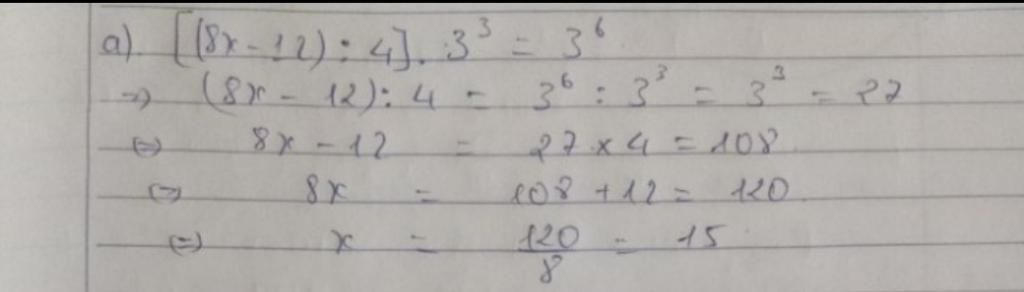 a). [(8x - 12) : 4] . 3³ = 3⁶
=> (8x - 12) : 4 = 3⁶ : 3³ = 3³ = 27
(=) 8x - 12 = 27 x 4 = 108
(=) 8x = 108 + 12 = 120
(=) x = 120/8 = 15